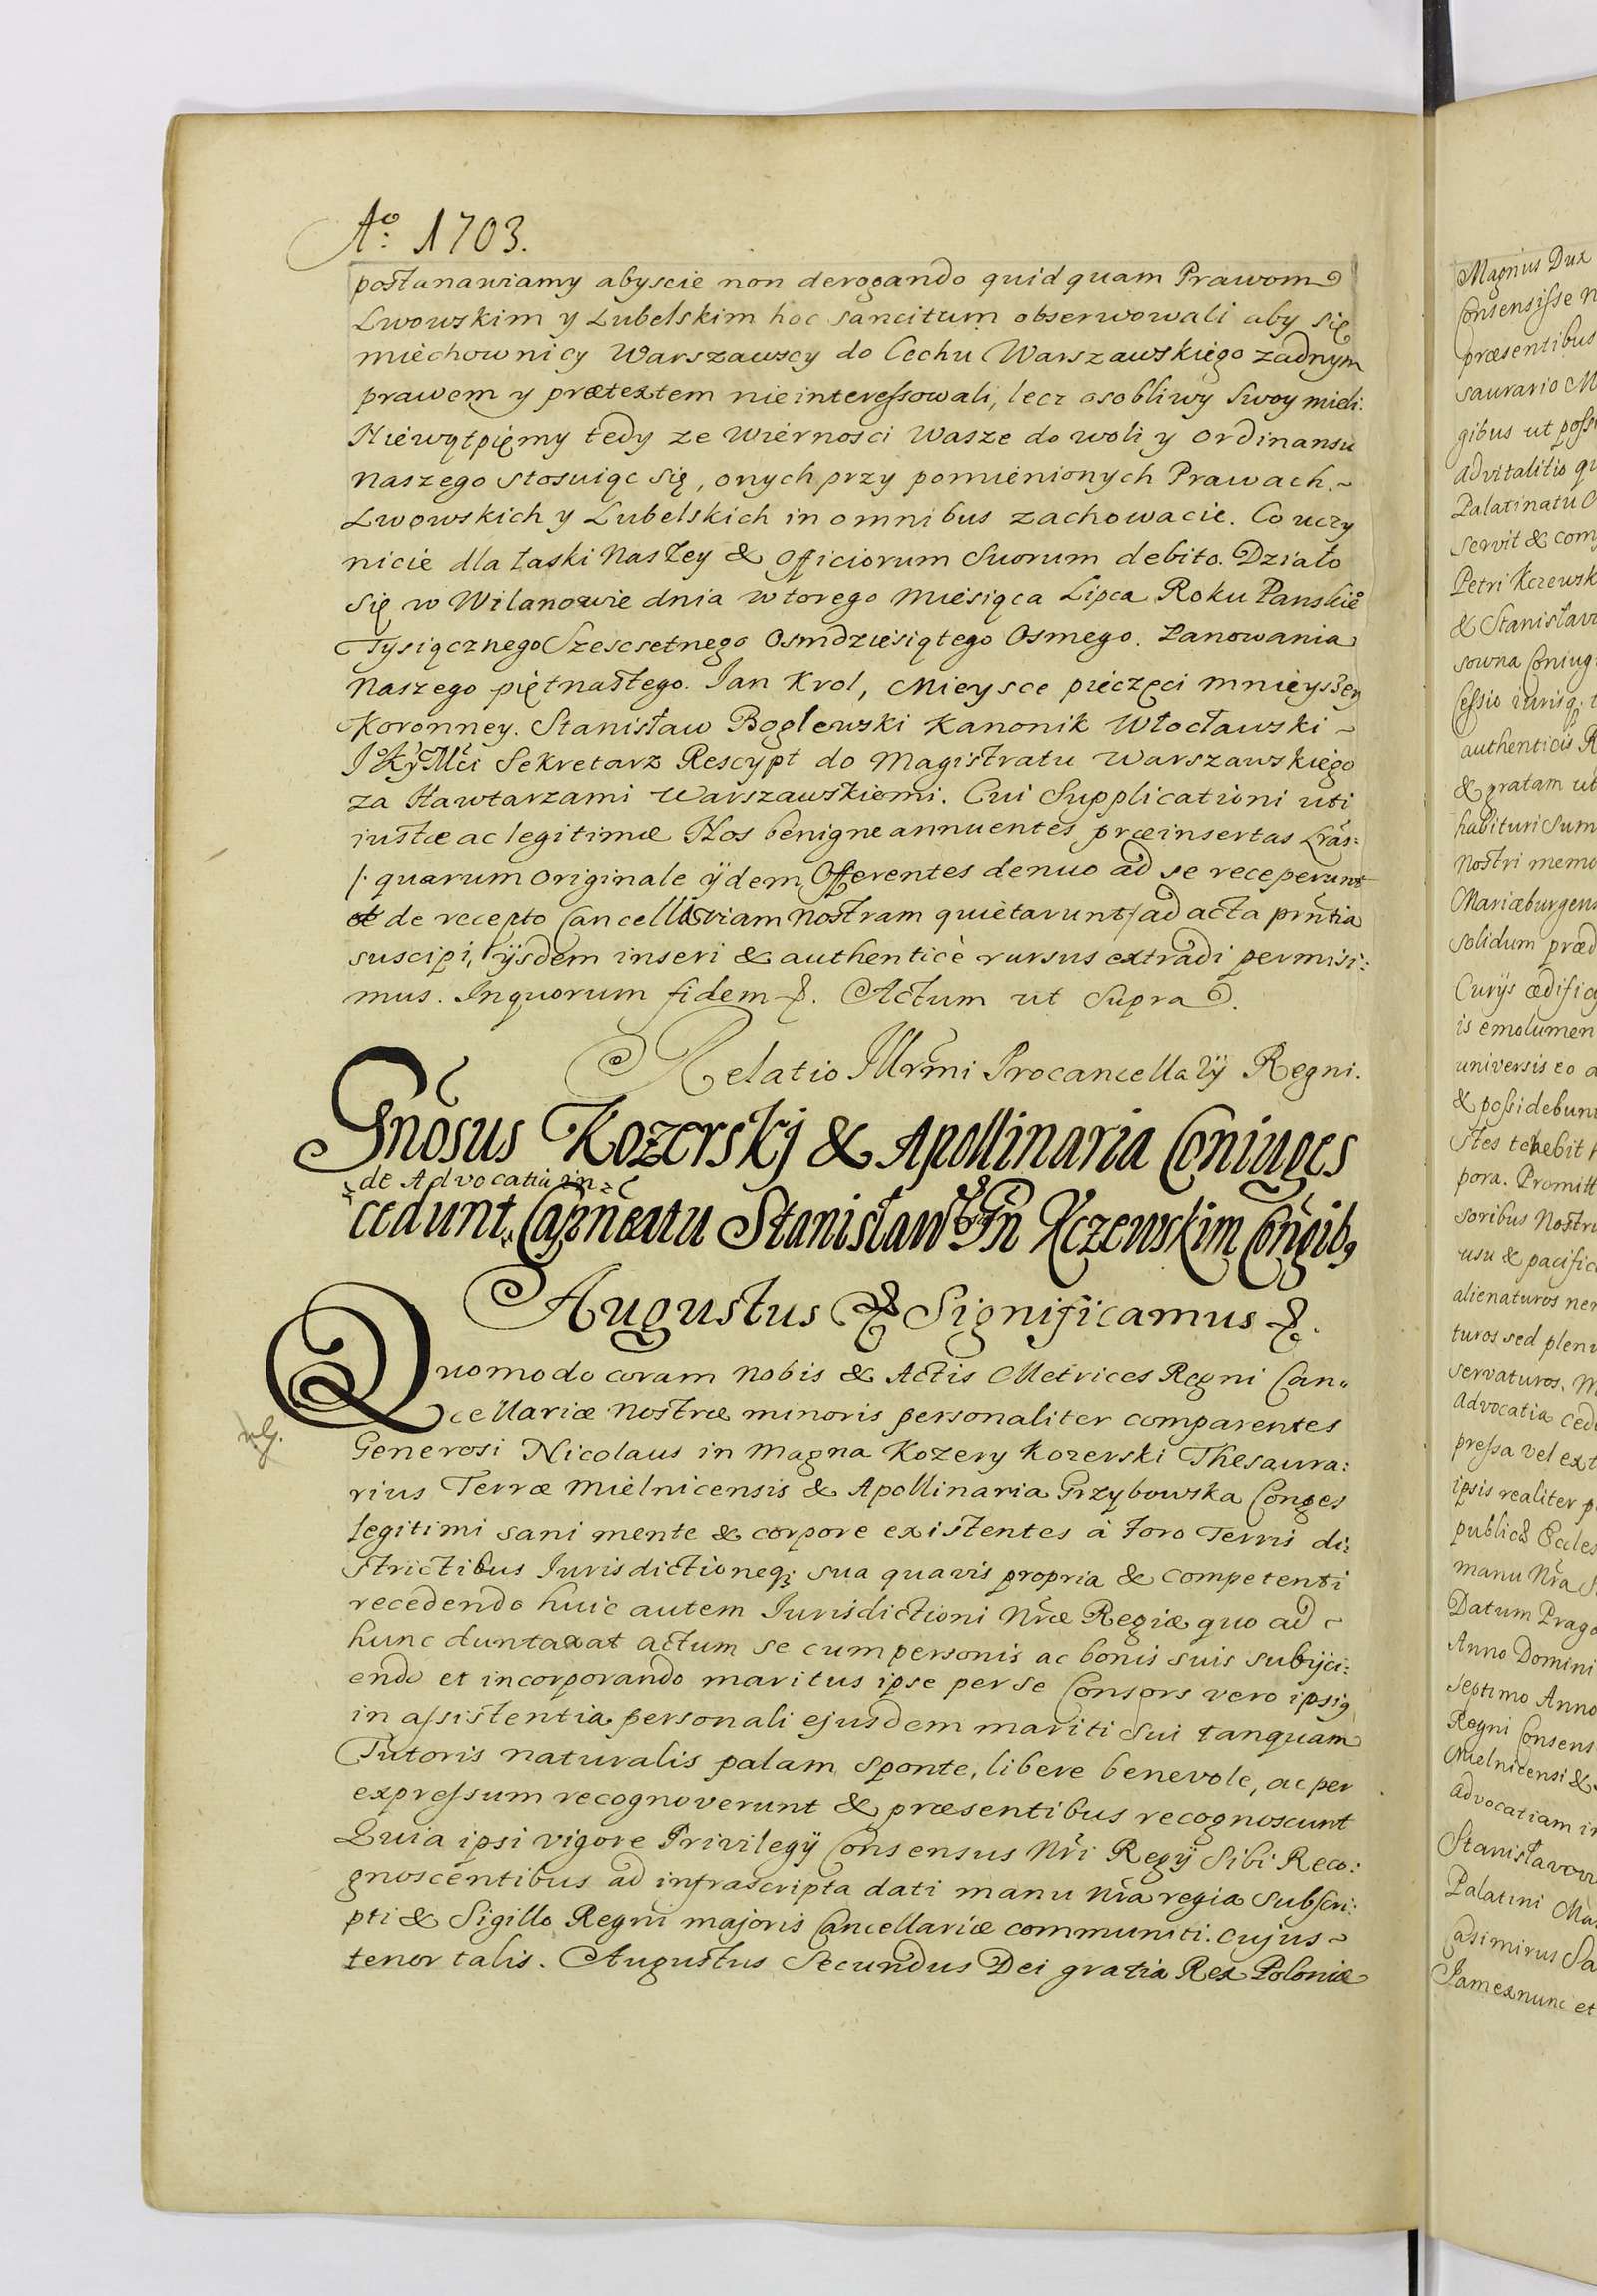 Aº: 1703.
postanawiamy abyscie non derogando quidquam Prawom
Lwowskim y Lubelskim hoc sancitum obserwowali aby się
miechownicy Warszawscy do Cechu Warszawskiego zadnym
prawem y prætextem nieinteressowali, lecz osobliwy Swoy mieli.
Niewątpięmy tedy ze Wiernosci Wasze do woli y Ordinansu
Naszego stosuiąc się, onych przy pomienionych Prawach.~
Lwowskich y Lubelskich in omnibus zachowacie. Co uczy
nicie dla łaski Naszey & Officiorum Suorum debito. Działo
się w Wilanowie dnia wtorego Miesiąca Lipca Roku Panskiego
Tysiącznego Szescsetnego Osmdziesiątego Osmego. Panowania
Naszego piętnastego. Jan Krol, Mieysce pieczęci mnieyszey
Koronney. Stanisław Boglewski Kanonik Włocławski ~
JKMći Sekretarz Rescypt do Magistratu Warszawskiego
za Hawtarzami Warszawskiemi. Cui Supplicationi uti
iustæ ac legitimæ Nos benigne annuentes præinsertas Lrãs:
/: quarum originale ijdem Offerentes denuo ad se receperunt
et de recepto Cancellariam nostram quietarunt / ad acta prñtia
suscipi, ijsdem inseri & authenticè rursus extradi permisi:
mus. In quorum fidem &. Actum ut Supra.
Relatio Illrmi Procancellarij Regni.
Gnõsus Kozerskj & Apollinaria Coniuges
de Advocatia in
cedunt
Stanisław
Kczewskim Conğib9
Augustus & Significamus &.
Quomodo coram nobis & Actis Metrices Regni Can„
cellariæ Nostræ minoris personaliter comparentes
Generosi Nicolaus in Magna Kozery Kozerski Thesaura:
rius Terræ Mielnicensis & Apollinaria Grzybowska Conges
legitimi sani mente & corpore existentes à foro Terris di:
strictibus Jurisdictioneq; sua quavis propria & competenti
recedendo huic autem Jurisdictioni Nr̃æ Regiæ quo ad ~
hunc duntaxat actum se cum personis ac bonis suis subijci:
endo et incorporando maritus ipse per se Consors vero ipsi9
in assistentia personali ejusdem mariti sui tanquam
Tutoris naturalis palam sponte, libere benevole, ac per
expressum recognoverunt & præsentibus recognoscunt
Quia ipsi vigore Privilegij Consensus Nr̃i Regij Sibi Reco:
gnoscentibus ad infrascripta dati manu Nr̃a regia Subscri:
pti & Sigillo Regni majoris Cancellariæ communiti. cujus ~
tenor talis. Augustus Secundus Dei gratia Rex Poloniæ
Magnus Dux
Consensisse
præsentibus
saurario
gibus ut
advitalitio
Palatinatu
servit &
Petri Kczewsk
& Stanisław
sowna Coniug
Cessio iurisq;
authenticis
& gratam ut
habituri sum
Nostri memo
Mariæburgen
solidum præd
Curijs ædific
is emolumen
universis eo
& possidebun
tenebit
pora. Promitt
soribus Nostr
usu & pacific
alienaturos
turos sed plen
servaturos.
Advocatia ced
pressa vel ext
ipsis realiter
public Eccles
manu Nr̃a
Datum Prag
Anno Domini
septimo Anno
Regni Consens
Mielnicensi &
advocatiam in
Stanisław
Palatini
asimirus
Jam ex nunc et